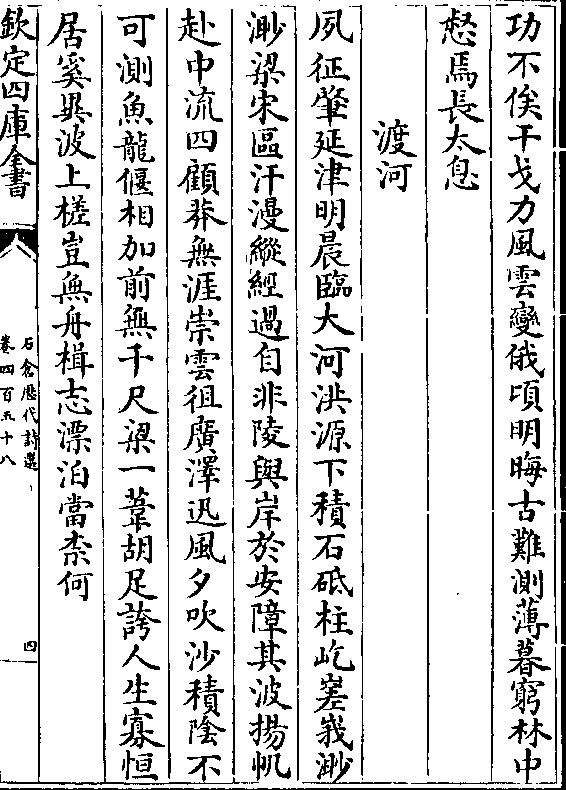 功不俟干戈力風雲變俄頃明晦古難測薄暮窮林中
愁焉長太息
渡河
夙征肇延津明晨臨大河洪源下積石砥柱屹嵳峩渺
渺梁宋區汗漫縱經過自非陵與岸於安障其波揚帆
赴中流四顧莽無涯崇雲徂廣澤迅風夕吹沙積陰不
可測魚龍偃相加前無千尺梁一葦胡足誇人生寡恒
居奚異波上槎豈無舟楫志漂泊當柰何
欽定四庫全書
石倉歷代詩選
卷四百五十八
四